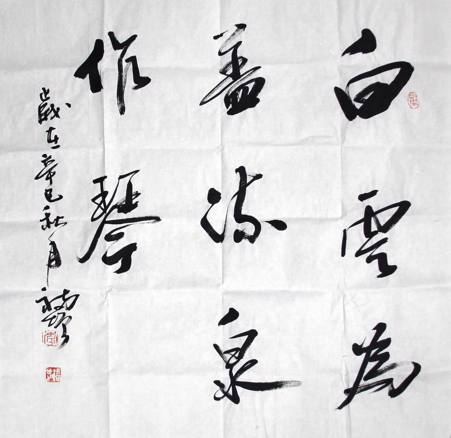 白雲為
盖流泉
作琴
歲在辛巳秋月